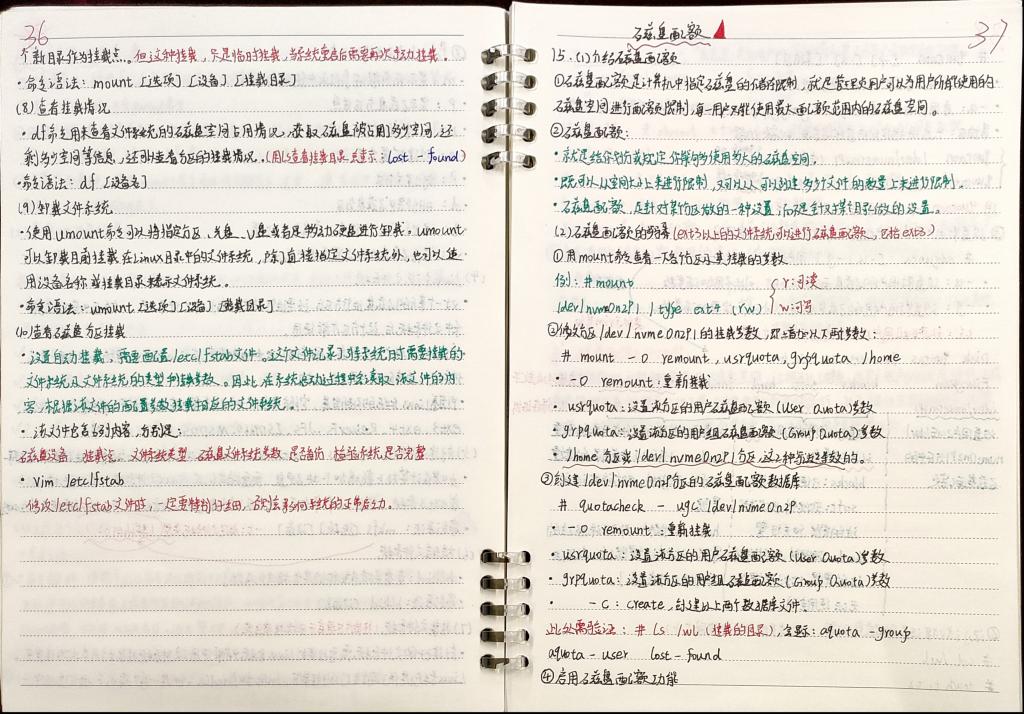 36
个新目录作为挂载点。但这种挂载，只是临时挂载，当系统重启后需要再次手动挂载。
·命令语法：mount [选项] [设备] [挂载目录]
(8)查看挂载情况
·df命令用来查看文件系统的磁盘空间占用情况，获取磁盘被占用多少空间，还
剩多少空间等信息，还可以查看分区的挂载情况。(用ls查看挂载目录若显示：lost-found)
·命令语法：df [设备名]
(9)卸载文件系统
·使用umount命令可以将指定分区、光盘、U盘或者是移动硬盘进行卸载。umount
可以卸载目前挂载在Linux目录中的文件系统，除了直接指定文件系统外，也可以使
用设备名称或挂载目录来表示文件系统。
·命令语法：umount [选项] [设备] [挂载目录]
(10)查看磁盘分区挂载
·设置自动挂载，需要配置/etc/fstab文件，这个文件记录了将系统启时需要挂载的
文件系统及文件系统的类型和挂载参数。因此，在系统启动过程中会读取该文件的内
容，根据该文件的配置参数挂载相应的文件系统。
·该文件包含6列内容，分别是：
磁盘设备 挂载点 文件系统类型 磁盘文件系统参数 是否备份 检验系统是否完整
·vim /etc/fstab
修改/etc/fstab文件时，一定要特别仔细，否则会影响系统的正常启动.
37
磁盘配额
15.(1)介绍磁盘配额
①磁盘配额是计算机中指定磁盘的储存限制，就是管理员用户可以为用户所能使用的
磁盘空间进行配额限制，每一用户只能使用最大配额范围内的磁盘空间。
②磁盘配额：
·就是给你访或规定你能够使用多大的磁盘空间；
·既可以从空间大小上来进行限制，又可以从可以创建多少个文件的数量上来进行限制.
·磁盘配额，是针对某分区做的一种设置，而不是针对某个目录做的设置。
(2)磁盘配额的步骤(ext3以上的文件系统可以进行磁盘配额，包括ext3)
①用mount命令查看一下各分区及其挂载的参数
例：#mount
/dev/nvm0n2P1 / type ext4 (rw) { r:可读
w:可写
②修改分区/dev/nvme0n2P1的挂载参数，即上面加以下两个参数：
# mount -o remount,usrquota,grpquota /home
·-o remount：重新挂载
·usrquota：设置该分区的用户磁盘配额(User Quota)参数
·grpquota：设置该分区的用户组磁盘配额(Group Quota)参数
·/home分区或/dev/nvme0n2P1分区，这2种写法是等效的。
③创建/dev/nvme0n2P分区的磁盘配额数据库
# quotacheck -ugc /dev/nvme0n2P
·-o remount：重新挂载
·usrquota：设置该分区的用户磁盘配额(User Quota)参数
·grpquota：设置该分区的用户组磁盘配额(Group Quota)参数
· -c：create，创建以上两个数据库文件.
此处需验证：# ls /wl (挂载的目录)，会显示：aquota-group
aquota-user lost-found
④启用磁盘配额功能